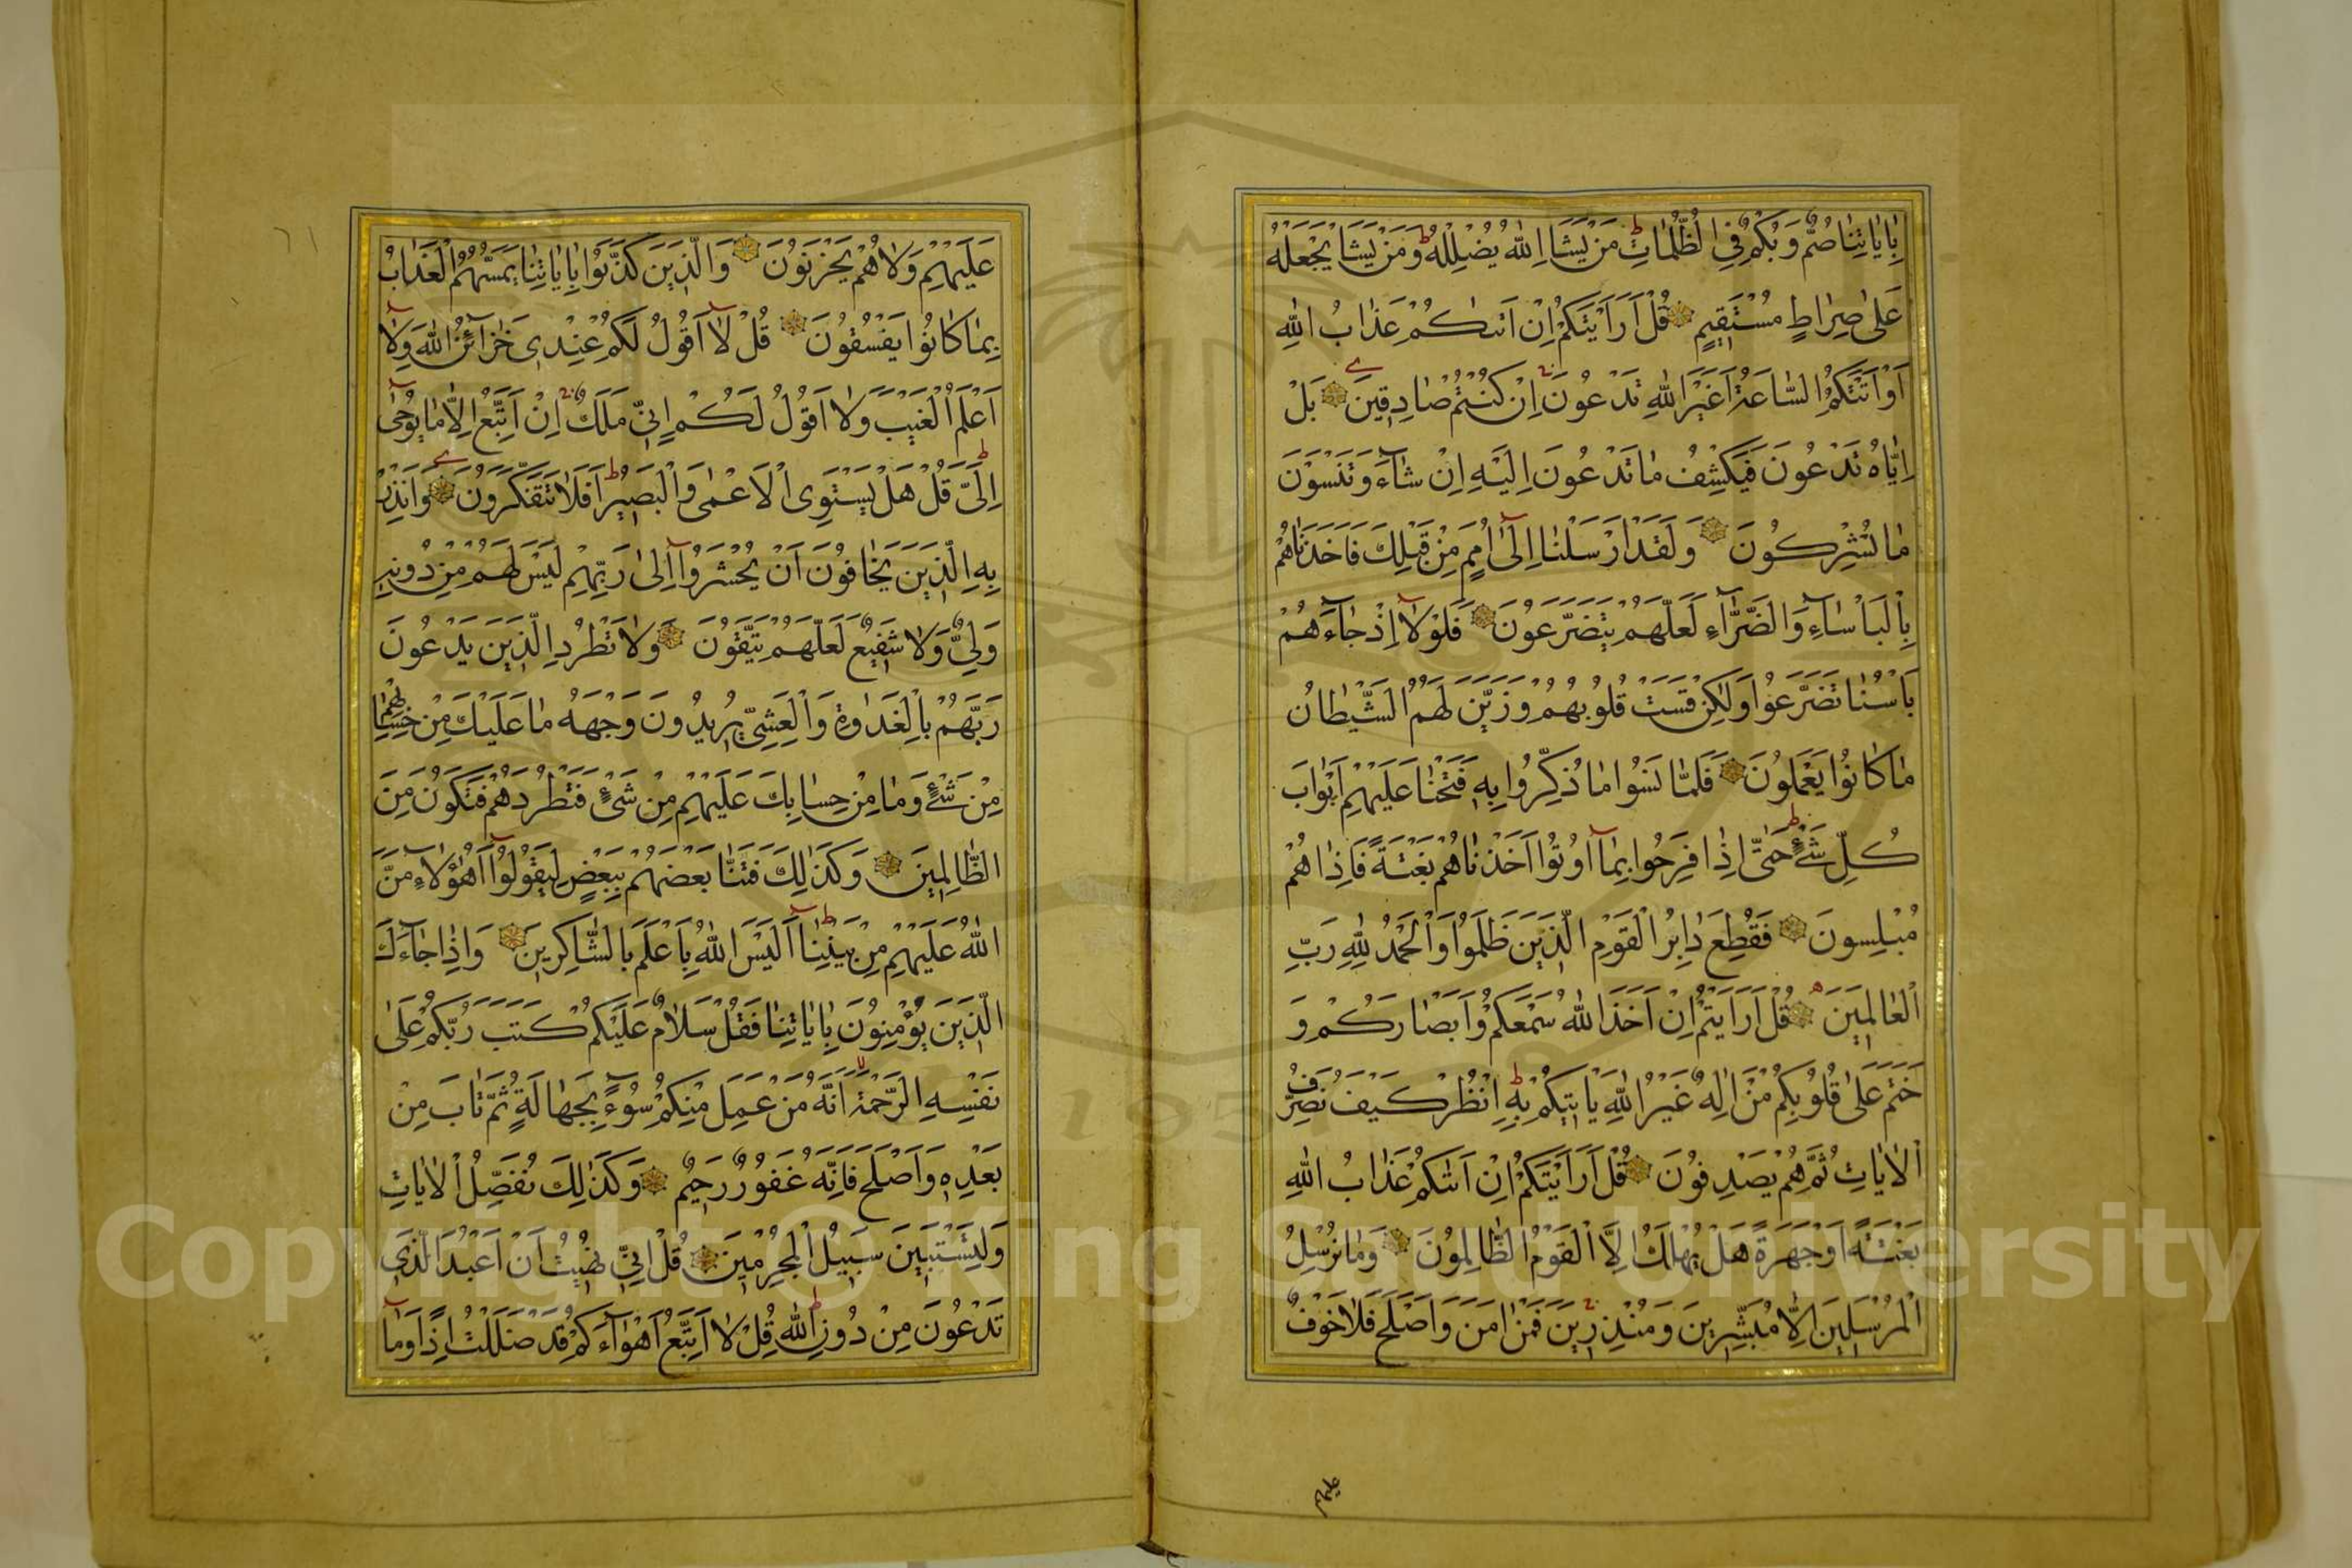 بِاٰيَاتِنَا صُمٌّ وَبُكْمٌ فِي الظُّلُمَاتِ مَنْ يَشَاِ اللّٰهُ يُضْلِلْهُ وَمَنْ يَشَاْ يَجْعَلْهُ
عَلٰى صِرَاطٍ مُسْتَقِيمٍ قُلْ اَرَاَيْتَكُمْ اِنْ اَتٰىكُمْ عَذَابُ اللّٰهِ
اَوْ اَتَتْكُمُ السَّاعَةُ اَغَيْرَ اللّٰهِ تَدْعُونَ اِنْ كُنْتُمْ صَادِقِينَ بَلْ
اِيَّاهُ تَدْعُونَ فَيَكْشِفُ مَا تَدْعُونَ اِلَيْهِ اِنْ شَآءَ وَتَنْسَوْنَ
مَا تُشْرِكُونَ وَلَقَدْ اَرْسَلْنَا اِلٰٓى اُمَمٍ مِنْ قَبْلِكَ فَاَخَذْنَاهُمْ
بِالْبَاْسَآءِ وَالضَّرَّآءِ لَعَلَّهُمْ يَتَضَرَّعُونَ فَلَوْلَآ اِذْ جَآءَهُمْ
بَاْسُنَا تَضَرَّعُوا وَلٰكِنْ قَسَتْ قُلُوبُهُمْ وَزَيَّنَ لَهُمُ الشَّيْطَانُ
مَا كَانُوا يَعْمَلُونَ فَلَمَّا نَسُوا مَا ذُكِّرُوا بِهٖ فَتَحْنَا عَلَيْهِمْ اَبْوَابَ
كُلِّ شَيْءٍ حَتّٰى اِذَا فَرِحُوا بِمَآ اُوتُوا اَخَذْنَاهُمْ بَغْتَةً فَاِذَا هُمْ
مُبْلِسُونَ فَقُطِعَ دَابِرُ الْقَوْمِ الَّذِينَ ظَلَمُوا وَالْحَمْدُ لِلّٰهِ رَبِّ
الْعَالَمِينَ قُلْ اَرَاَيْتُمْ اِنْ اَخَذَ اللّٰهُ سَمْعَكُمْ وَاَبْصَارَكُمْ وَ
خَتَمَ عَلٰى قُلُوبِكُمْ مَنْ اِلٰهٌ غَيْرُ اللّٰهِ يَاْتِيكُمْ بِهٖ اِنْظُرْ كَيْفَ نُصَرِّفُ
الْاٰيَاتِ ثُمَّ هُمْ يَصْدِفُونَ قُلْ اَرَاَيْتَكُمْ اِنْ اَتٰىكُمْ عَذَابُ اللّٰهِ
بَغْتَةً اَوْ جَهْرَةً هَلْ يُهْلَكُ اِلَّا الْقَوْمُ الظَّالِمُونَ وَمَا نُرْسِلُ
الْمُرْسَلِينَ اِلَّا مُبَشِّرِينَ وَمُنْذِرِينَ فَمَنْ اٰمَنَ وَاَصْلَحَ فَلَا خَوْفٌ
عليهم
عَلَيْهِمْ وَلَا هُمْ يَحْزَنُونَ وَالَّذِينَ كَذَّبُوا بِاٰيَاتِنَا يَمَسُّهُمُ الْعَذَابُ
بِمَا كَانُوا يَفْسُقُونَ قُلْ لَآ اَقُولُ لَكُمْ عِنْدِى خَزَآئِنُ اللّٰهِ وَلَآ
اَعْلَمُ الْغَيْبَ وَلَا اَقُولُ لَكُمْ اِنِّى مَلَكٌ اِنْ اَتَّبِعُ اِلَّا مَا يُوحٰى
اِلَيَّ قُلْ هَلْ يَسْتَوِى الْاَعْمٰى وَالْبَصِيرُ اَفَلَا تَتَفَكَّرُونَ وَاَنْذِرْ
بِهِ الَّذِينَ يَخَافُونَ اَنْ يُحْشَرُوآ اِلٰى رَبِّهِمْ لَيْسَ لَهُمْ مِنْ دُونِهٖ
وَلِيٌّ وَلَا شَفِيعٌ لَعَلَّهُمْ يَتَّقُونَ وَلَا تَطْرُدِ الَّذِينَ يَدْعُونَ
رَبَّهُمْ بِالْغَدٰوةِ وَالْعَشِيِّ يُرِيدُونَ وَجْهَهُ مَا عَلَيْكَ مِنْ حِسَابِهِمْ
مِنْ شَيْءٍ وَمَا مِنْ حِسَابِكَ عَلَيْهِمْ مِنْ شَيْءٍ فَتَطْرُدَهُمْ فَتَكُونَ مِنَ
الظَّالِمِينَ وَكَذٰلِكَ فَتَنَّا بَعْضَهُمْ بِبَعْضٍ لِيَقُولُوآ اَهٰٓؤُلَآءِ مَنَّ
اللّٰهُ عَلَيْهِمْ مِنْ بَيْنِنَا اَلَيْسَ اللّٰهُ بِاَعْلَمَ بِالشَّاكِرِينَ وَاِذَا جَآءَكَ
الَّذِينَ يُؤْمِنُونَ بِاٰيَاتِنَا فَقُلْ سَلَامٌ عَلَيْكُمْ كَتَبَ رَبُّكُمْ عَلٰى
نَفْسِهِ الرَّحْمَةَ اَنَّهُ مَنْ عَمِلَ مِنْكُمْ سُوٓءًا بِجَهَالَةٍ ثُمَّ تَابَ مِنْ
بَعْدِهٖ وَاَصْلَحَ فَاَنَّهُ غَفُورٌ رَحِيمٌ وَكَذٰلِكَ نُفَصِّلُ الْاٰيَاتِ
وَلِيَسْتَبِينَ سَبِيلُ الْمُجْرِمِينَ قُلْ اِنِّى نُهِيتُ اَنْ اَعْبُدَ الَّذِينَ
تَدْعُونَ مِنْ دُونِ اللّٰهِ قُلْ لَا اَتَّبِعُ اَهْوَآءَكُمْ قَدْ ضَلَلْتُ اِذًا وَمَآ
Copyright © King Saud University